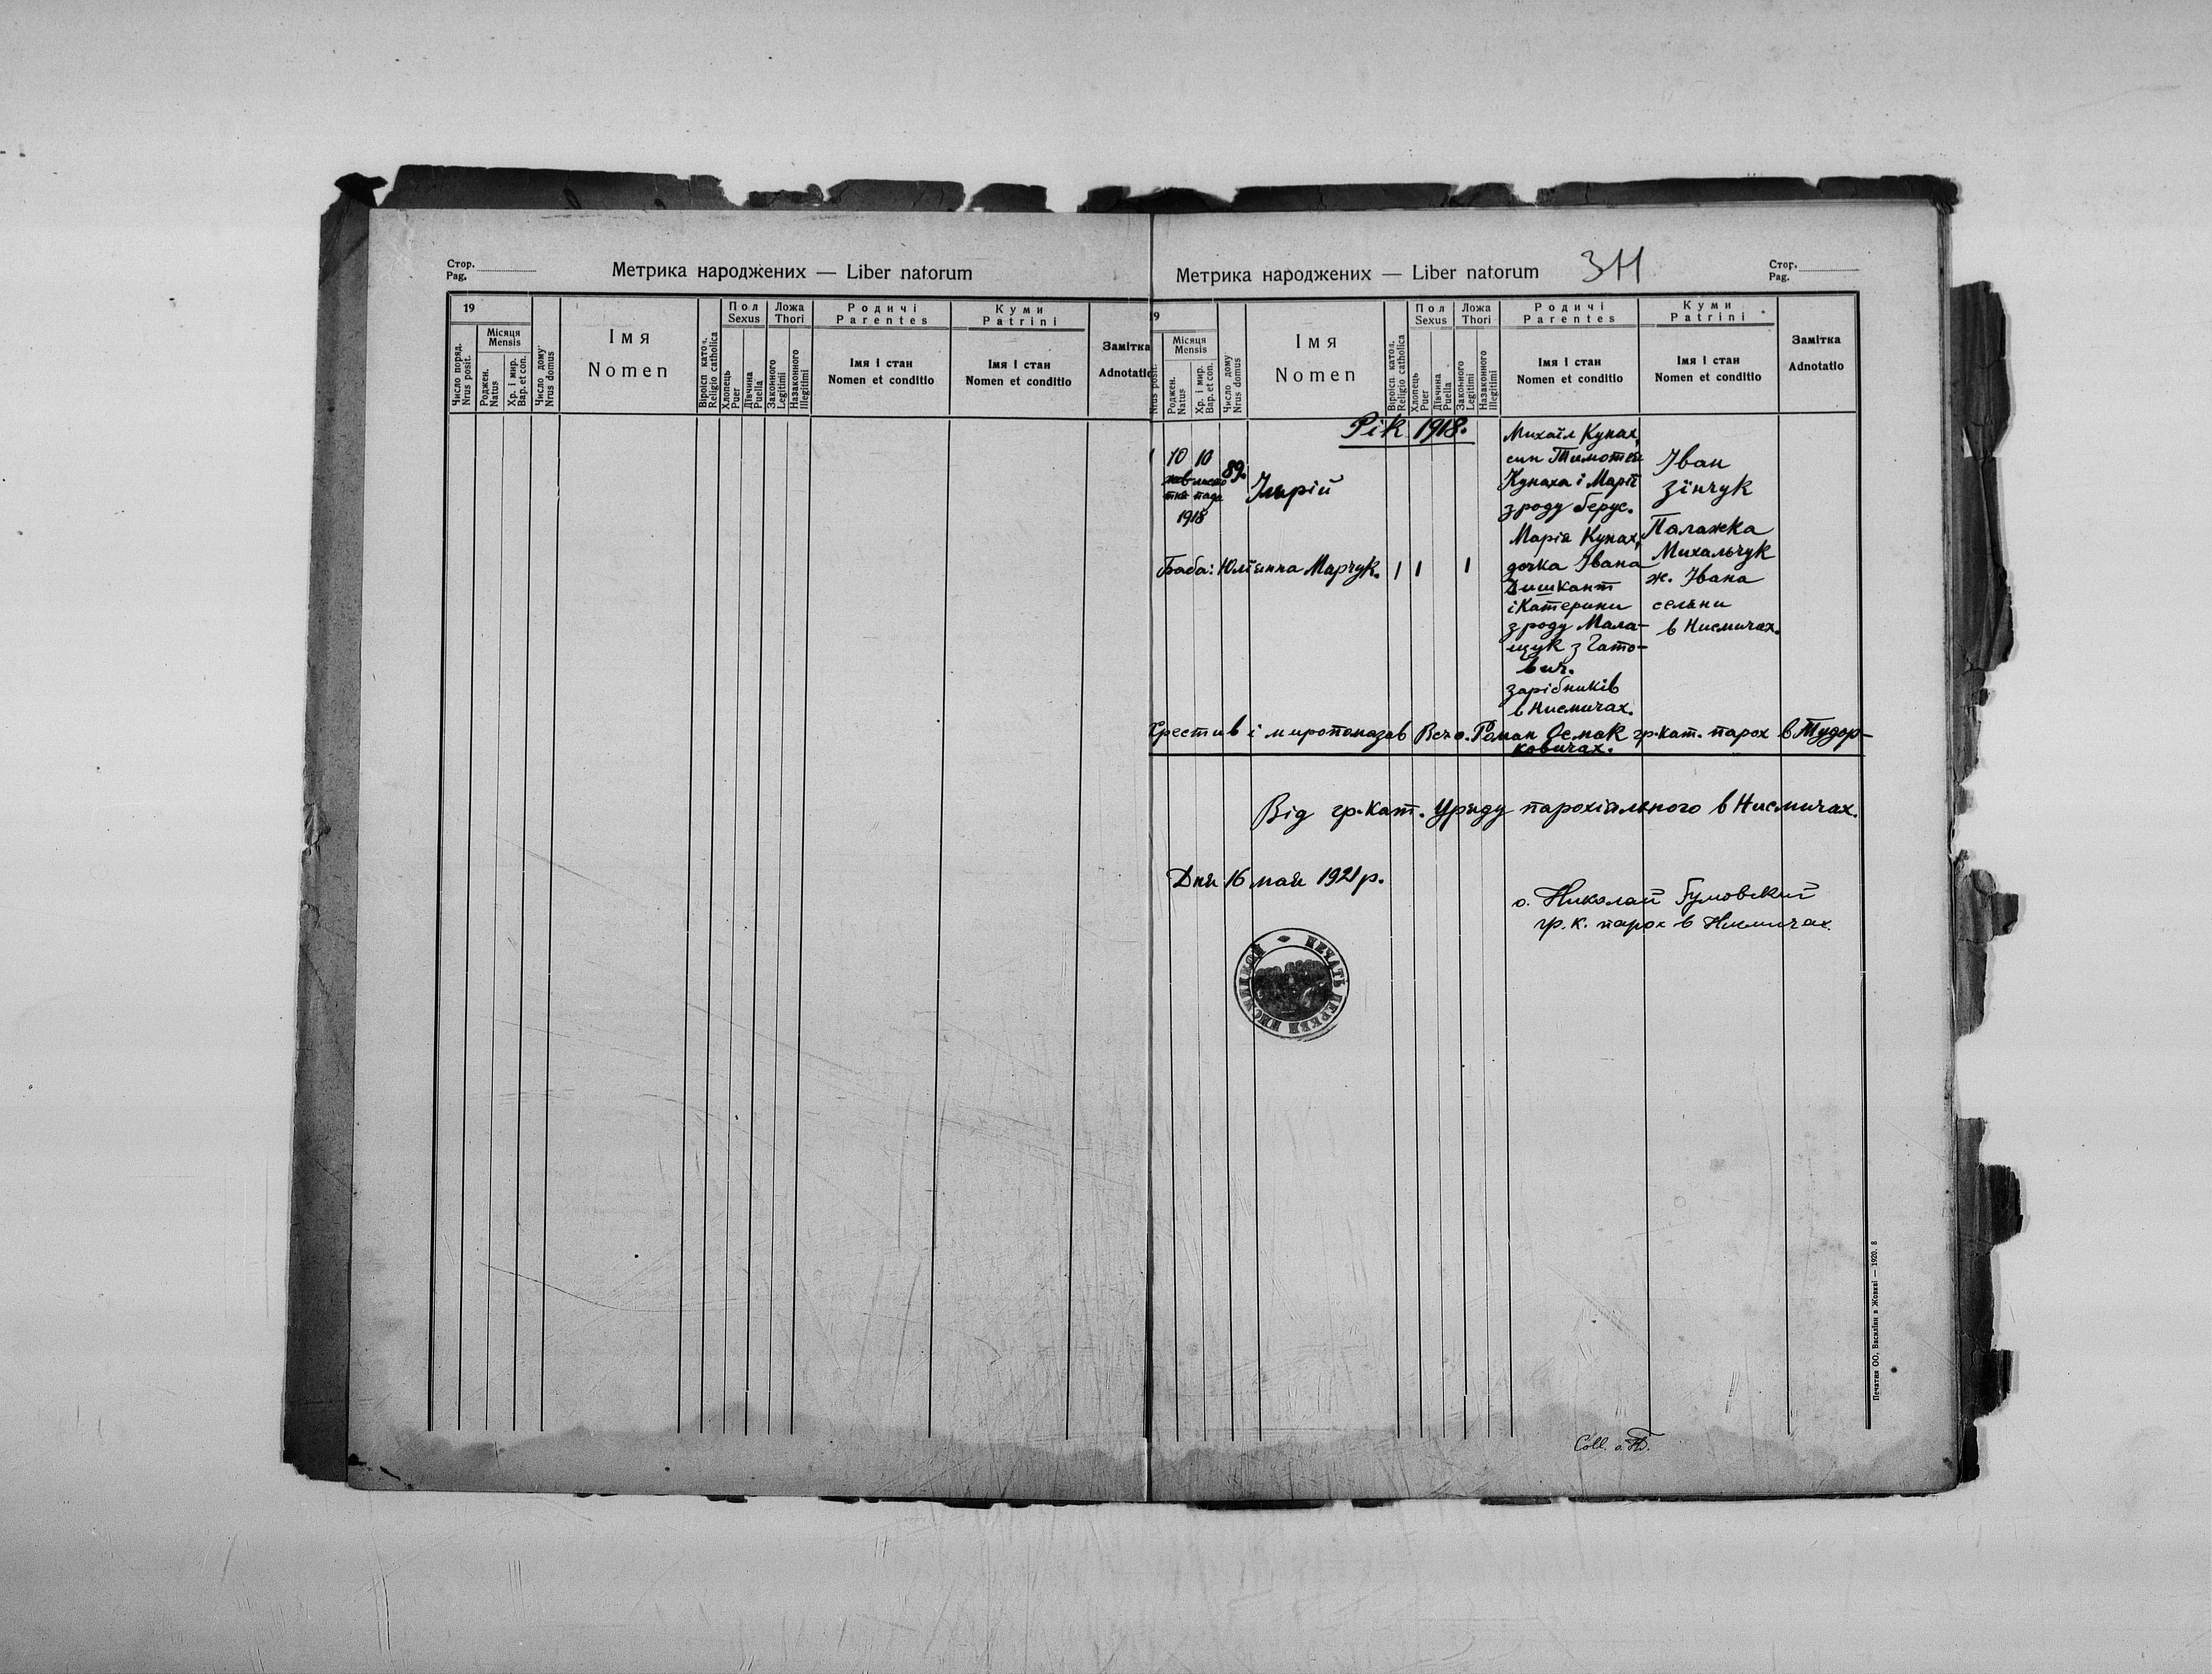 Стор.
Pag.
Метрика народжених — Liber natorum
19
Число поряд.
Nrus posit.
Місяця
Mensis
Роджен.
Natus
Хр. і мир.
Bap. et con.
Число дому
Nrus domus
Імя
Nomen
Віроісп. катол.
Religio catholica
Пол
Sexus
Хлопець
Puer
Дівчина
Puella
Ложа
Thori
Законного
Legitimi
Незаконного
Illegitimi
Родичі
Parentes
Імя і стан
Nomen et conditio
Куми
Patrini
Імя і стан
Nomen et conditio
Замітка
Adnotatio
Метрика народжених — Liber natorum
311
Стор.
Pag.
19
Nrus posit.
Місяця
Mensis
Роджен.
Natus
Хр. і мир.
Bap. et con.
Число дому
Nrus domus
Імя
Nomen
Віроісп. катол.
Religio catholica
Пол
Sexus
Хлопець
Puer
Дівчина
Puella
Ложа
Thori
Законного
Legitimi
Незаконного
Illegitimi
Родичі
Parentes
Імя і стан
Nomen et conditio
Куми
Patrini
Імя і стан
Nomen et conditio
Замітка
Adnotatio
Рік 1918.
1
10 10
жов- листо
тня пада
1918
89.
Ілярій
Баба: Юліянна Марчук.
1 1 1
Михаїл Кунах,
син Тимотея
Кунаха і Марії
з роду Берус.
Марія Кунах,
дочка Івана
Дишкант
і Катерини
з роду Мала-
щук з Гато-
вич.
зарібників
в Нисмичах.
Іван
Зінчук
Палажка
Михальчук
ж. Івана
селяни
в Нисмичах.
Хрестив і миропомазав Всч. о. Роман Осмак гр.кат. парох в Тудор-
ковичах.
Від гр.кат. Уряду парохіяльного в Нисмичах.
Дня 16 мая 1921 р.
о. Николай Гумовский
гр. к. парох в Нисмичах.
ПЕЧАТЬ ЦЕРКВИ НИСМИЦКОЙ
Coll.
Печатня ОО. Василіян в Жовкві — 1920. 8